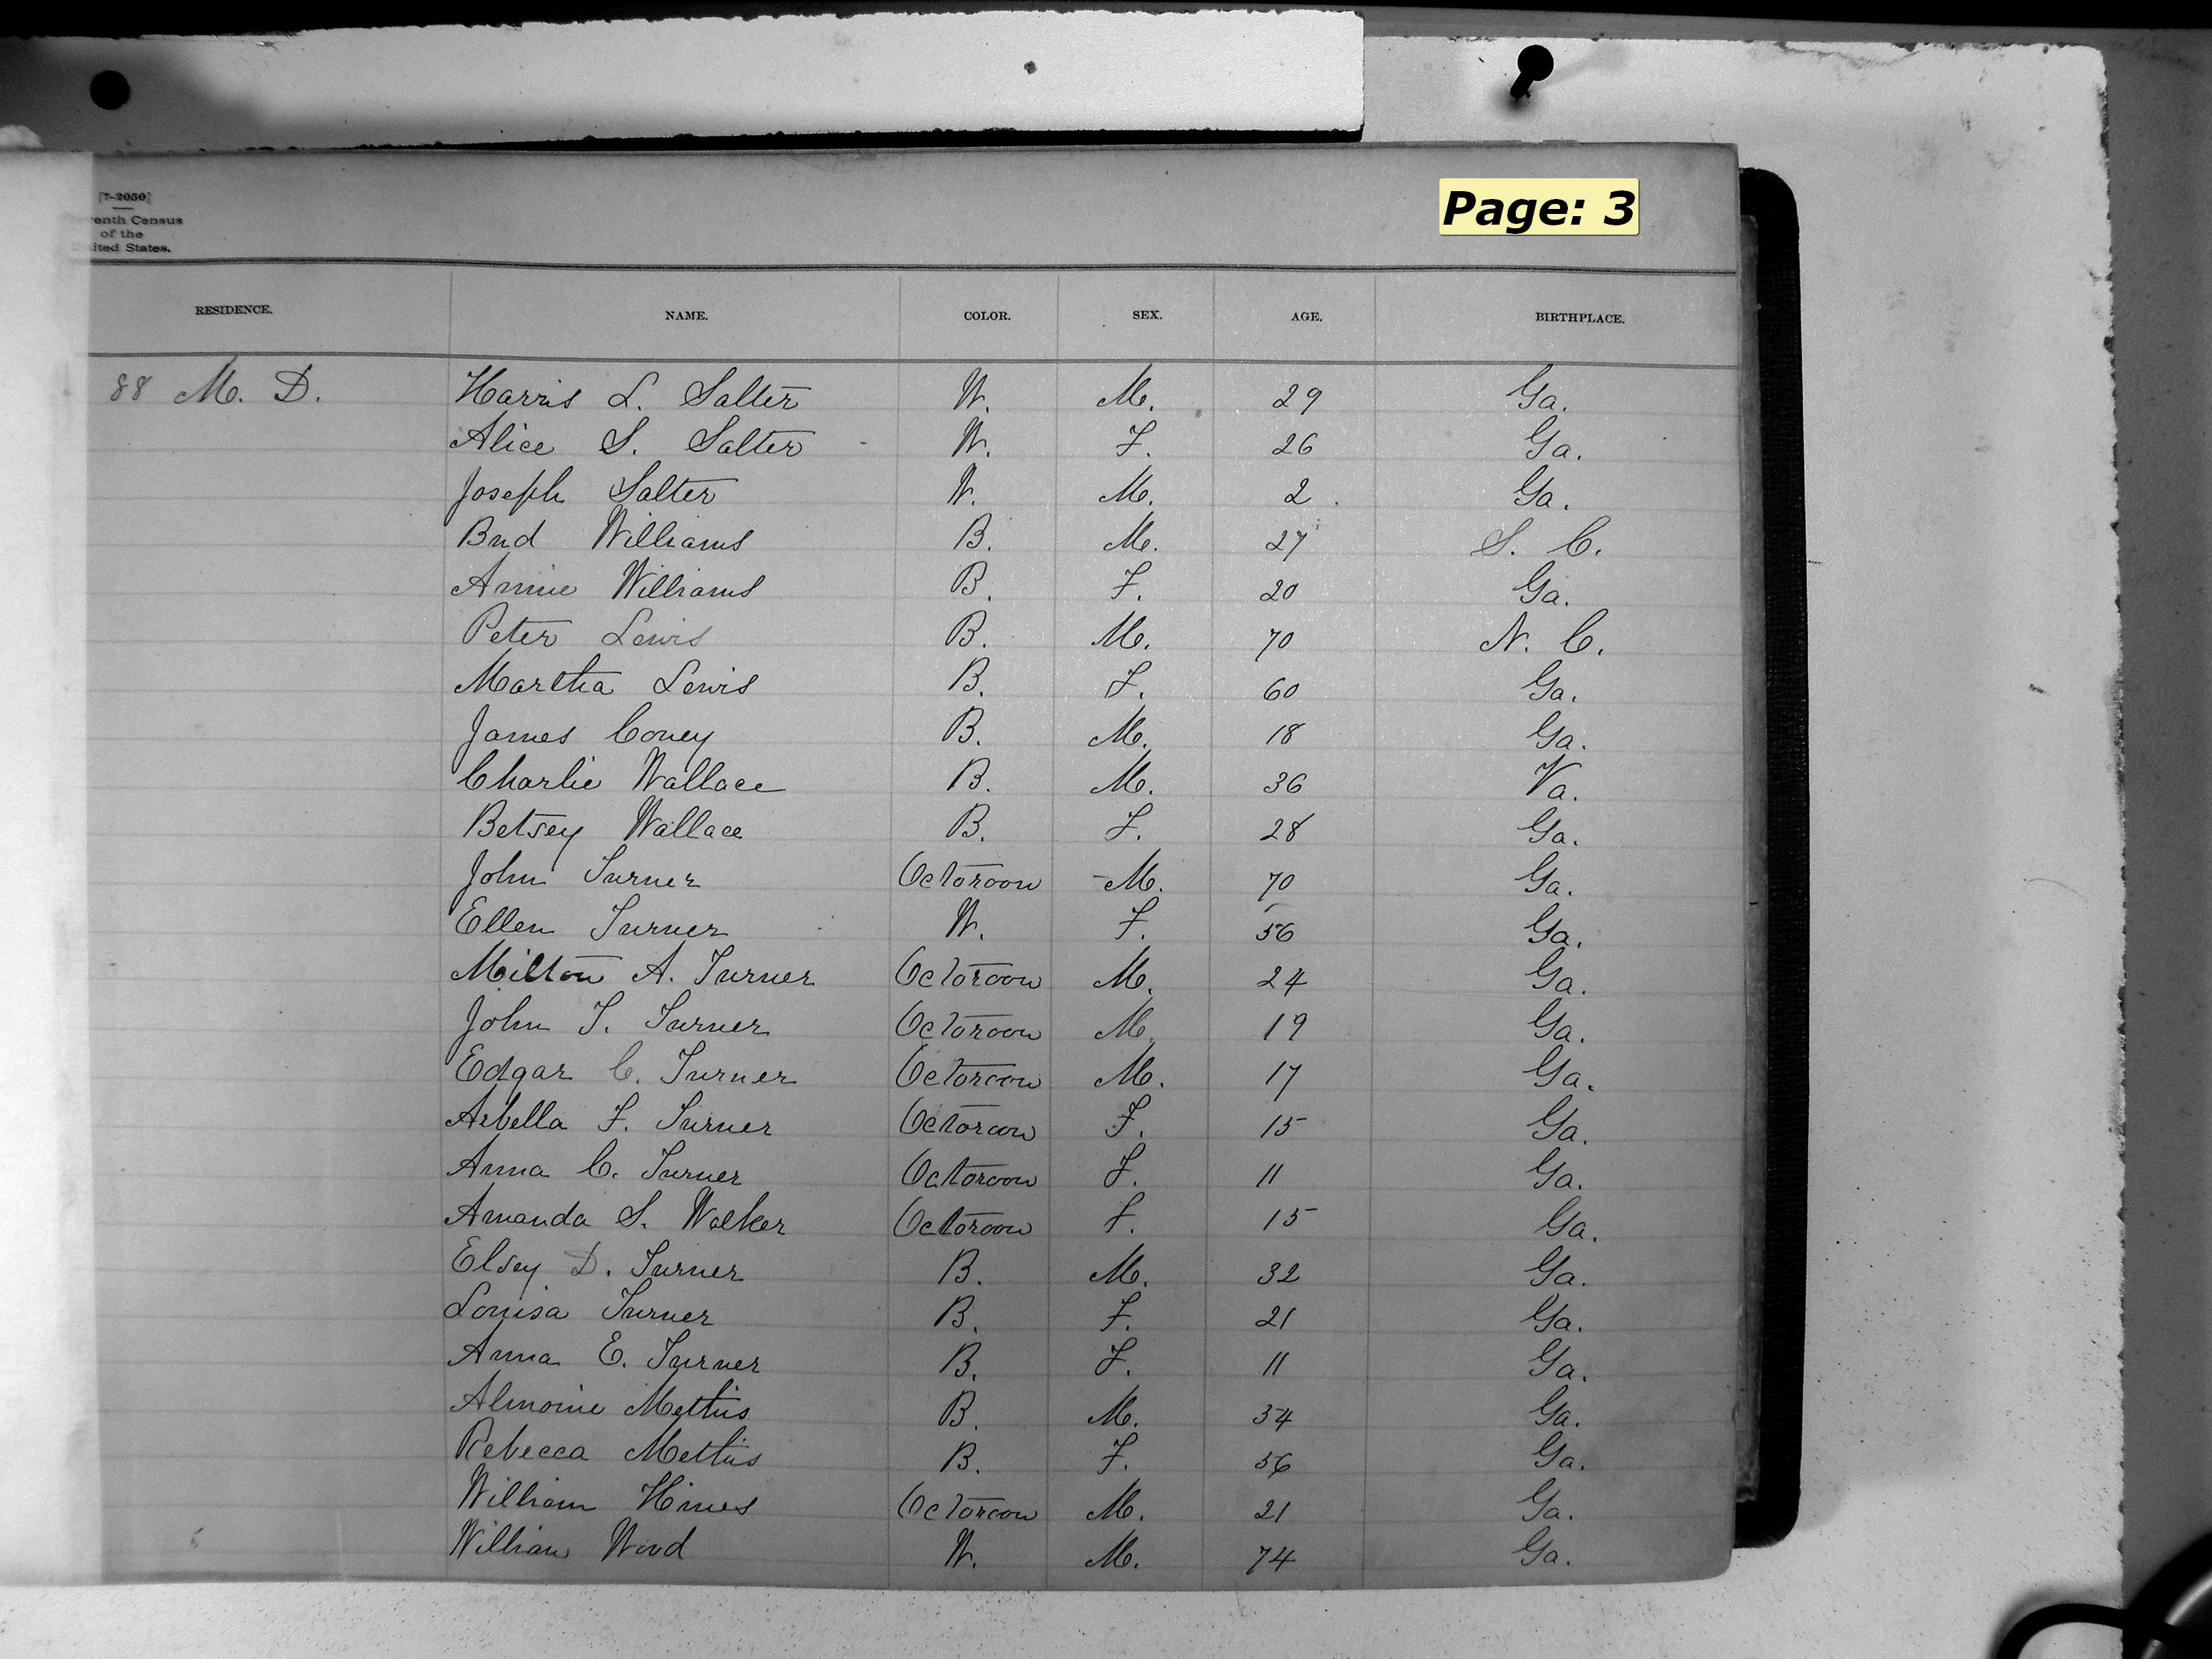 Page: 3
[7-2050]
enth Census
of the
ited States.
RESIDENCE. NAME. COLOR. SEX. AGE. BIRTHPLACE.
88 M. D. Harris L. Salter W. M. 29 Ga.
Alice S. Salter W. F. 26 Ga.
Joseph Salter W. M. 2 Ga.
Bud Williams B. M. 27 S. C.
Annie Williams B. F. 20 Ga.
Peter Lewis B. M. 70 N. C.
Martha Lewis B. F. 60 Ga.
James Coney B. M. 18 Ga.
Charlie Wallace B. M. 36 Va.
Betsey Wallace B. F. 28 Ga.
John Turner Octoroon M. 70 Ga.
Ellen Turner W. F. 56 Ga.
Milton A. Turner Octoroon M. 24 Ga.
John T. Turner Octoroon M. 19 Ga.
Edgar C. Turner Octoroon M. 17 Ga.
Arbella F. Turner Octoroon F. 15 Ga.
Anna C. Turner Octoroon F. 11 Ga.
Amanda S. Walker Octoroon F. 15 Ga.
Elsey D. Turner B. M. 32 Ga.
Louisa Turner B. F. 21 Ga.
Anna E. Turner B. F. 11 Ga.
B. M. 34 Ga.
Rebecca B. F. 56 Ga.
William Hines Octoroon M. 21 Ga.
William Wood W. M. 74 Ga.